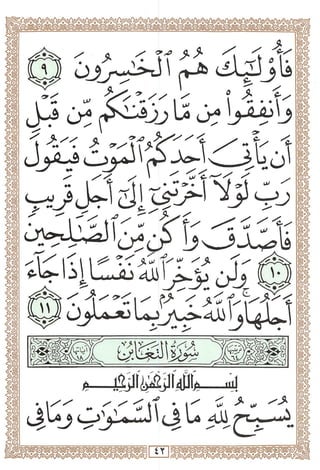 فَأُوْلَٰٓئِكَ هُمُ ٱلْخَٰسِرُونَ ٩
وَأَنفِقُوا۟ مِن مَّا رَزَقْنَٰكُم مِّن قَبْلِ
أَن يَأْتِىَ أَحَدَكُمُ ٱلْمَوْتُ فَيَقُولَ
رَبِّ لَوْلَآ أَخَّرْتَنِىٓ إِلَىٰٓ أَجَلٍ قَرِيبٍ
فَأَصَّدَّقَ وَأَكُن مِّنَ ٱلصَّٰلِحِينَ
١٠ وَلَن يُؤَخِّرَ ٱللَّهُ نَفْسًا إِذَا جَآءَ
أَجَلُهَا ۚ وَٱللَّهُ خَبِيرٌۢ بِمَا تَعْمَلُونَ ١١
سُورَةُ التَّغَابُنِ
بِسْمِ ٱللَّهِ ٱلرَّحْمَٰنِ ٱلرَّحِيمِ
يُسَبِّحُ لِلَّهِ مَا فِى ٱلسَّمَٰوَٰتِ وَمَا فِى
٤٢